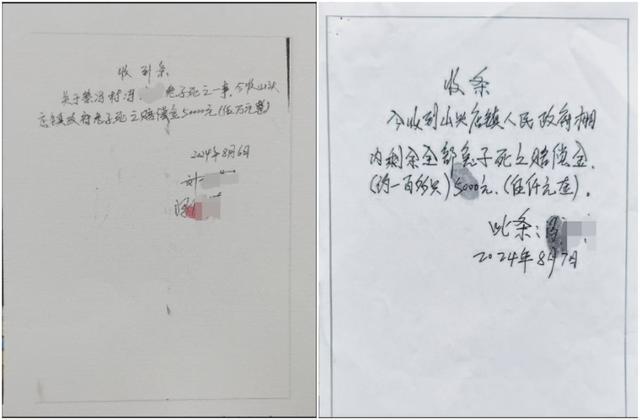 收到条
关于蔡冯村冯 兔子死之一事,今收山头
店镇政府兔子死之赔偿金50000元(伍万元整)
2024年8月6日
收条
今收到山头店镇人民政府棚
内剩余全部兔子死之赔偿金.
(约一百多只)5000元.(伍仟元整).
此条:
2024年8月7日